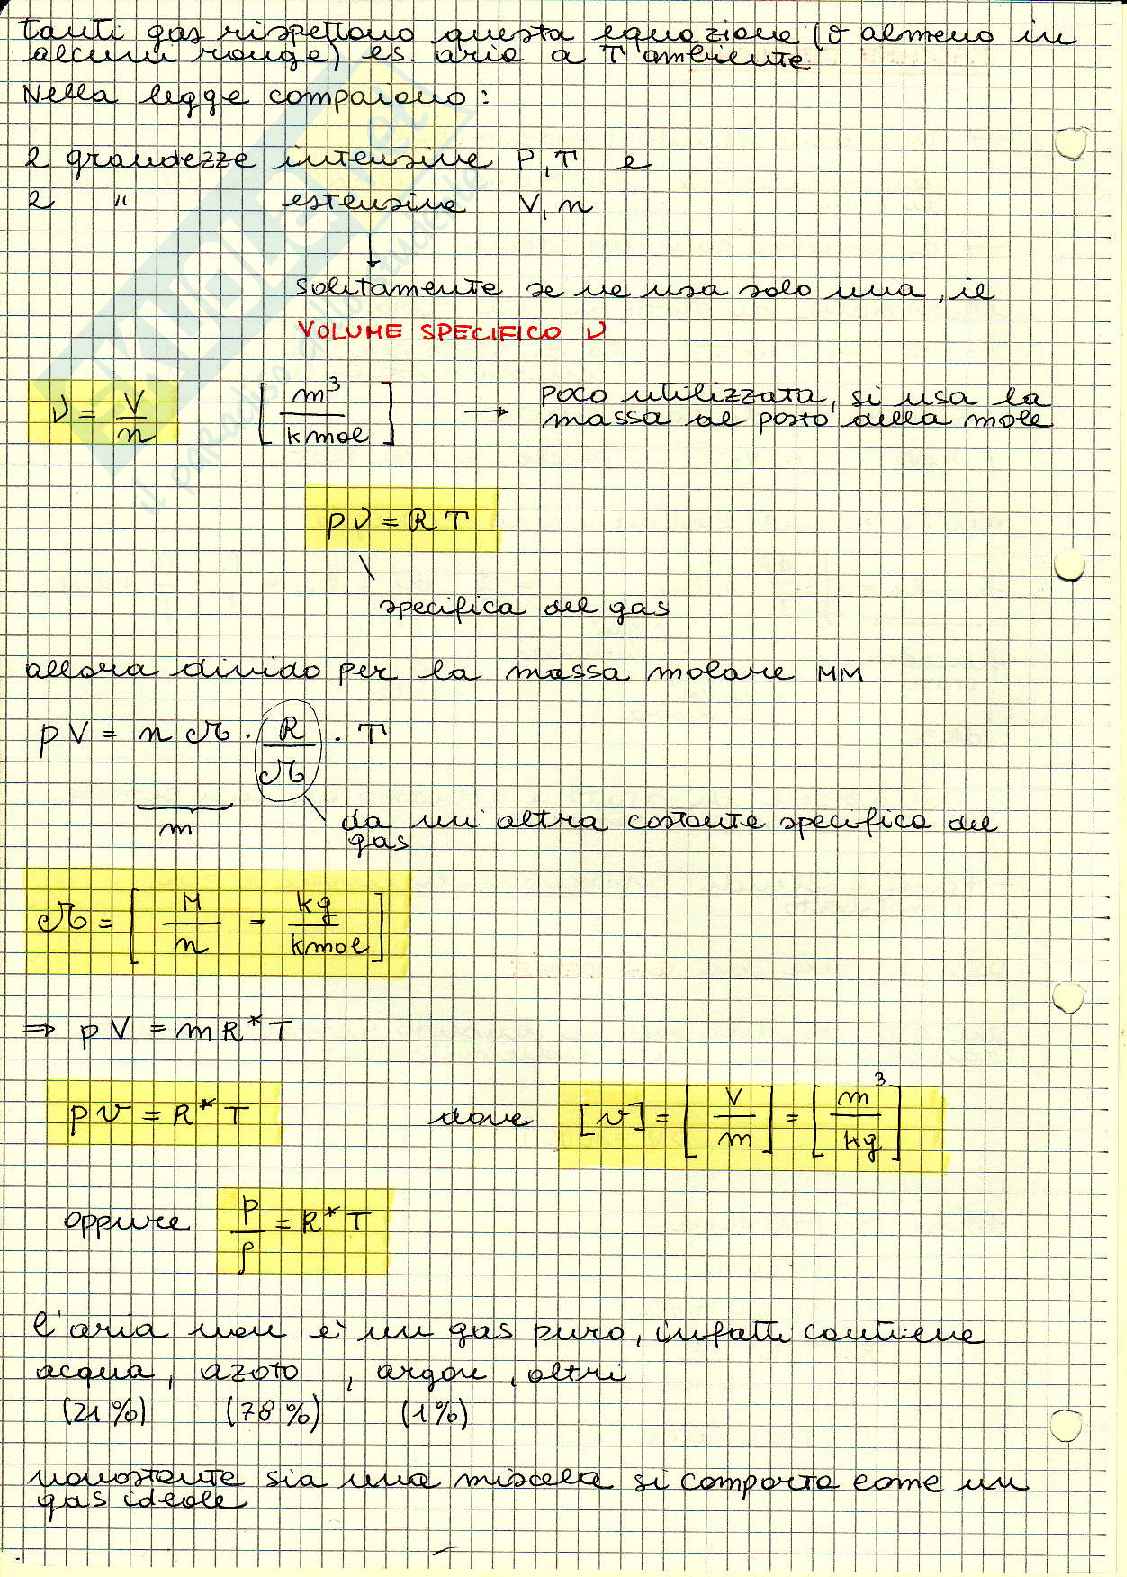 tanti gas rispettano questa equazione (o almeno in
alcuni range) es. aria a T ambiente
Nella legge compaiono:
2 grandezze intensive P, T e
2 " estensive V, n
↓
solitamente se ne usa solo una, il
VOLUME SPECIFICO ν
ν = V/n [m³/kmol] → poco utilizzata, si usa la
massa al posto della mole
pν = RT
specifica del gas
allora divido per la massa molare MM
pV = n ℳ · R/ℳ · T
m da un'altra costante specifica del
gas
ℳ = [M/n - kg/kmol]
⇒ pV = mR*T
pv = R*T dove [v] = [V/m] = [m³/kg]
oppure p/ρ = R*T
l'aria non è un gas puro, infatti contiene
acqua, azoto, argon, altri
(21%) (78%) (1%)
nonostante sia una miscela si comporta come un
gas ideale